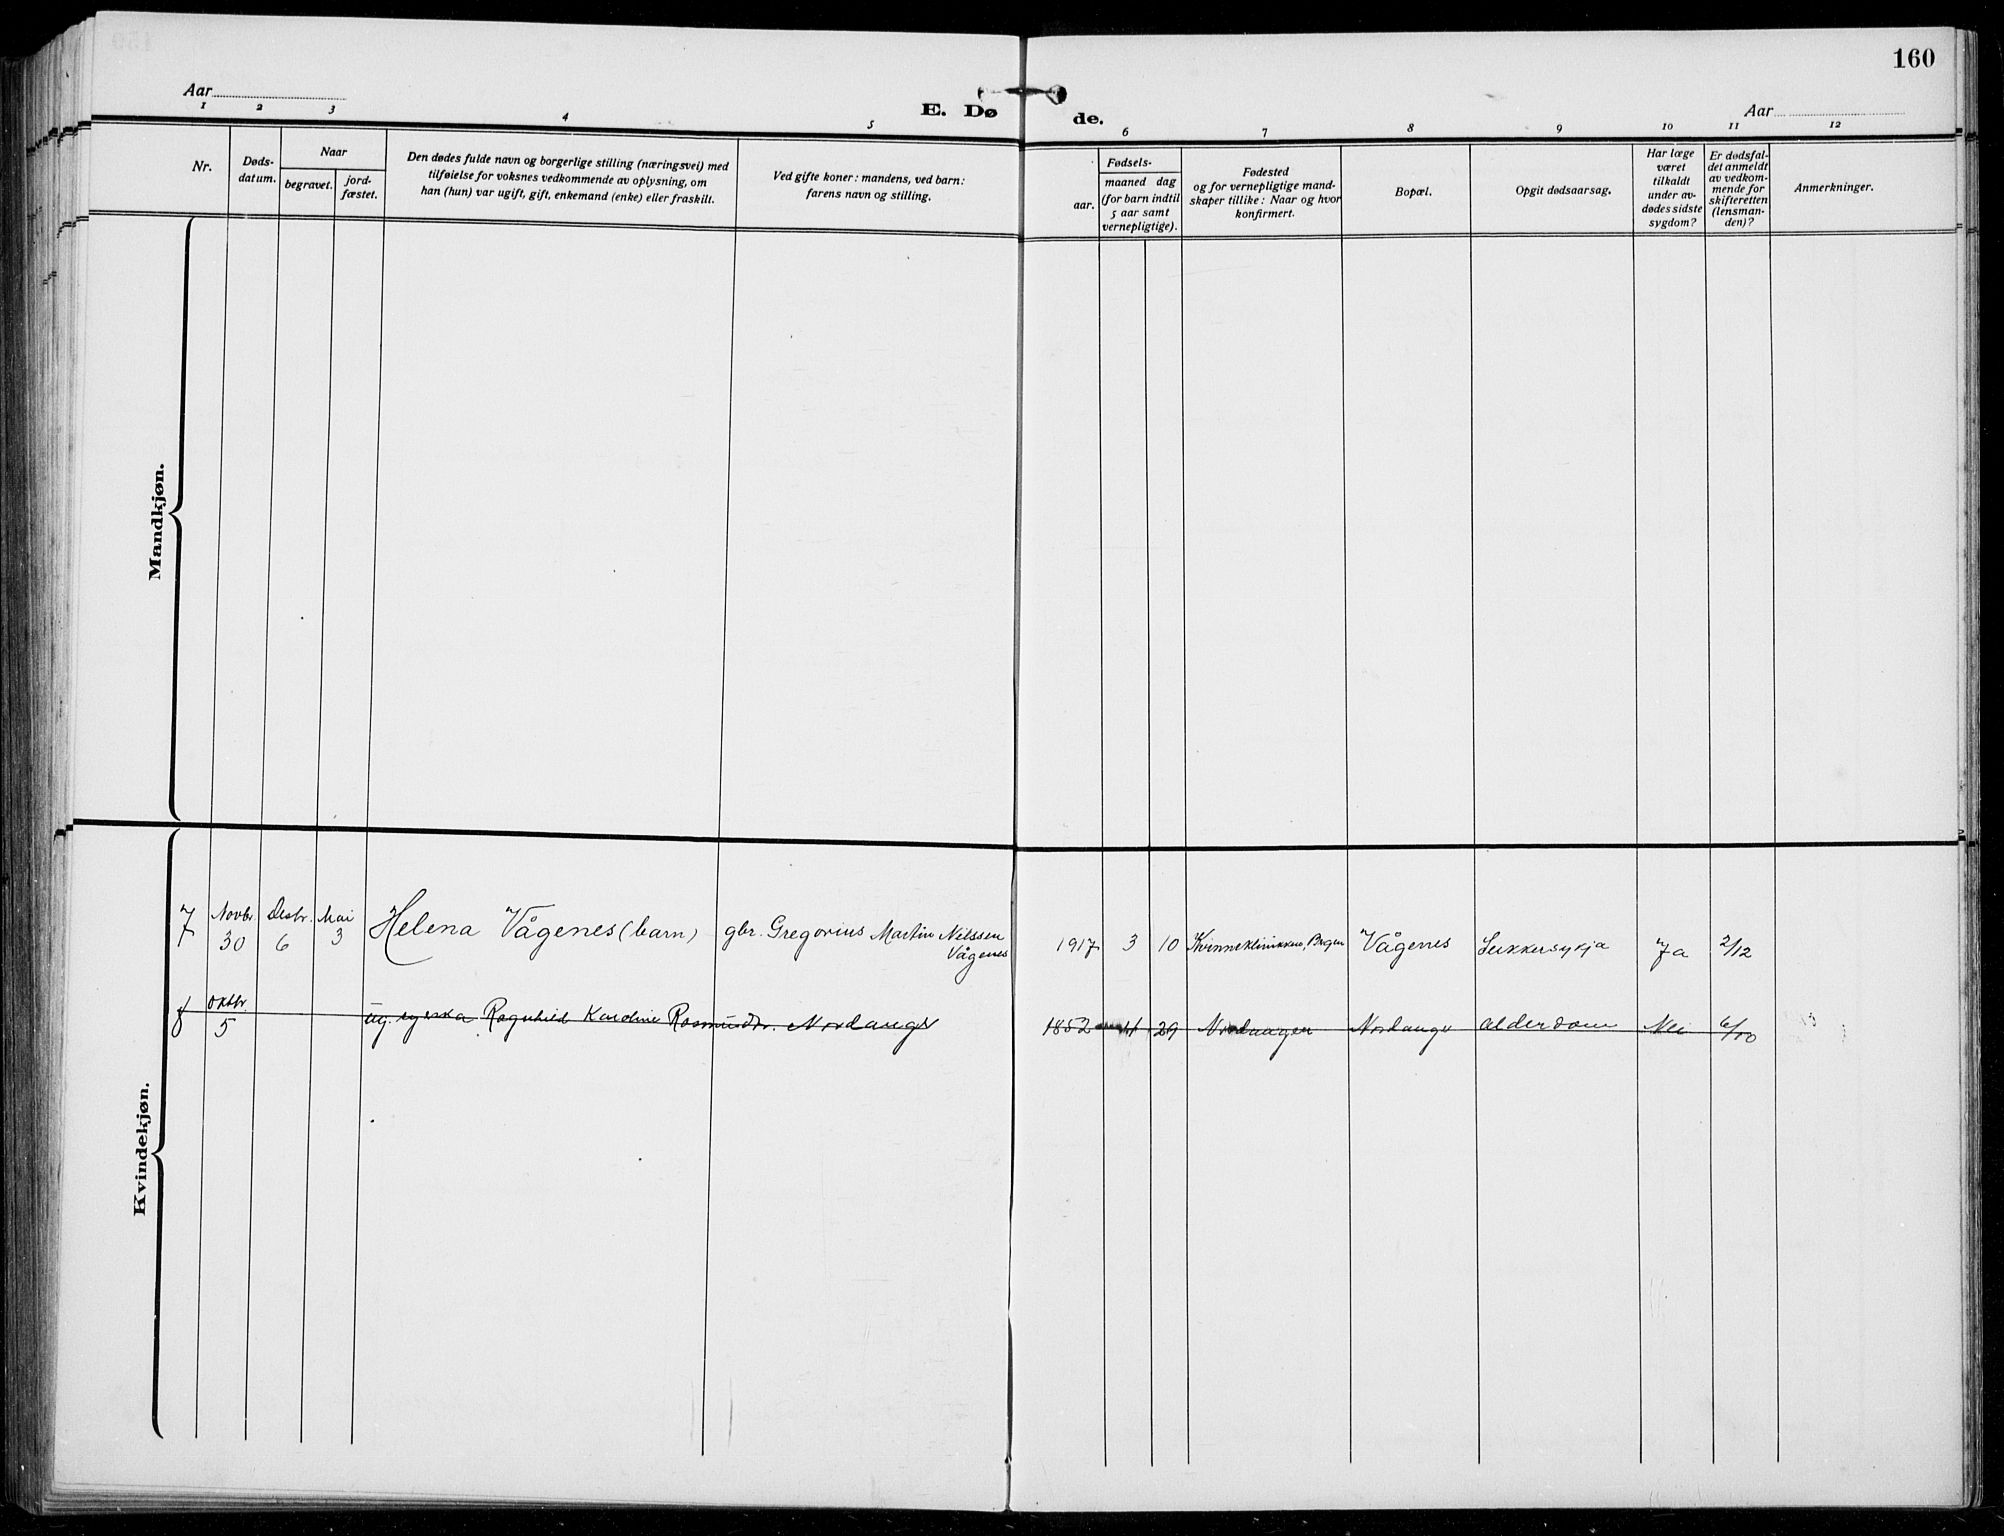 160
Aar
E. Dø de.
Aar
1 2 3 4 5 6 7 8 9 10 11 12
Nr.
Døds-
datum.
Naar
begravet.
jord-
fæstet.
Den dødes fulde navn og borgerlige stilling (næringsvei) med
tilføielse for voksnes vedkommende av oplysning, om
han (hun) var ugift, gift, enkemand (enke) eller fraskilt.
Ved gifte koner: mandens, ved barn:
farens navn og stilling.
Fødsels-
aar.
maaned dag
(for barn indtil
5 aar samt
vernepligtige).
Fødested
og for vernepligtige mand-
skaper tillike: Naar og hvor
konfirmert.
Bopæl.
Opgit dødsaarsag.
Har læge
været
tilkaldt
under av-
dødes sidste
sygdom?
Er dødsfal-
det anmeldt
av vedkom-
mende for
skifteretten
(lensman-
den)?
Anmerkninger.
Mandkjøn.
Kvindekjøn.
7 Novbr. 30 Desbr. 6 Mai 3 Helena Vågenes (barn) gbr. Gregorius Martin Nilssen
Vågenes
1917 3 10 Kvinneklinikken, Bergen Vågenes Sukkersykja Ja 2/12
8 Oktbr. 5 ug. Ragnhild Karoline Rasmusdtr. Nordanger
1852 29 Nordanger Nordanger Alderdom Nei 6/10